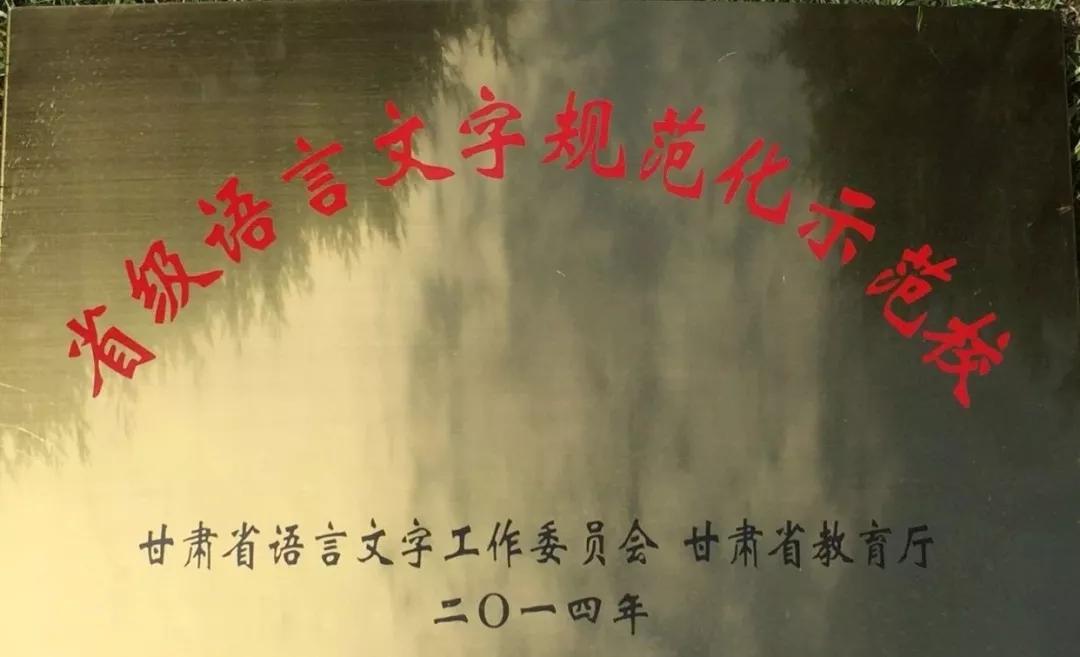 省级语言文字规范化示范校
甘肃省语言文字工作委员会 甘肃省教育厅
二〇一四年